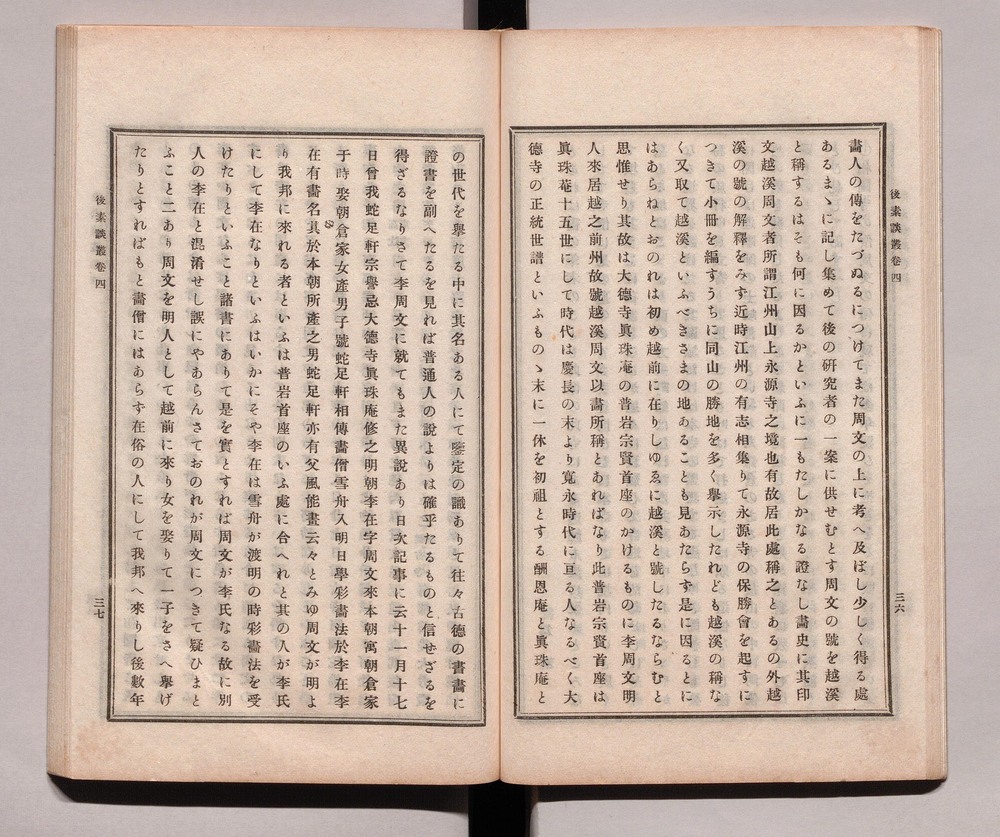 後素談叢卷四
三六
畵人の傳をたづぬるにつけてまた周文の上に考へ及ぼし少しく得る處
あるまゝに記し集めて後の研究者の一案に供せむとす周文の號を越溪
と稱するはそも何に因るかといふに一もたしかなる證なし畵史に其印
文越溪周文者所謂江州山上永源寺之境也有故居此處稱之とあるの外越
溪の號の解釋をみず近時江州の有志相集りて永源寺の保勝會を起すに
つきて小冊を編すうちに同山の勝地を多く擧示したれども越溪の稱な
く又取て越溪といふべきさまの地あることも見あたらず是に因るとに
はあらねとおのれは初め越前に在りしゆゑに越溪と號したるならむと
思惟せり其故は大德寺眞珠庵の普岩宗賢首座のかけるものに李周文明
人來居越之前州故號越溪周文以畵所稱とあればなり此普岩宗賢首座は
眞珠菴十五世にして時代は慶長の末より寬永時代に亘る人なるべく大
德寺の正統世譜といふものゝ末に一休を初祖とする酬恩庵と眞珠庵と
の世代を擧たる中に其名ある人にて鑒定の識ありて往々古德の書畵に
證書を副へたるを見れば普通人の說よりは確乎たるものと信せざるを
得ざるなりさて李周文に就てもまた異說あり日次記事に云十一月十七
日曾我蛇足軒宗譽忌大德寺眞珠庵修之明朝李在字周文來本朝寓朝倉家
于時娶朝倉家女產男子號蛇足軒相傳畵僧雪舟入明日學彩畵法於李在李
在有畵名其於本朝所產之男蛇足軒亦有父風能畵云々とみゆ周文が明よ
り我邦に來れる者といふは普岩首座のいふ處に合へれと其の人が李氏
にして李在なりといふはいかにそや李在は雪舟が渡明の時彩畵法を受
けたりといふこと諸書にありて是を實とすれば周文が李氏なる故に別
人の李在と混淆せし誤にやあらんさておのれが周文につきて疑ひまと
ふこと二あり周文を明人として越前に來り女を娶りて一子をさへ擧げ
たりとすればもと畵僧にはあらす在俗の人にして我邦へ來りし後數年
後素談叢卷四
三七